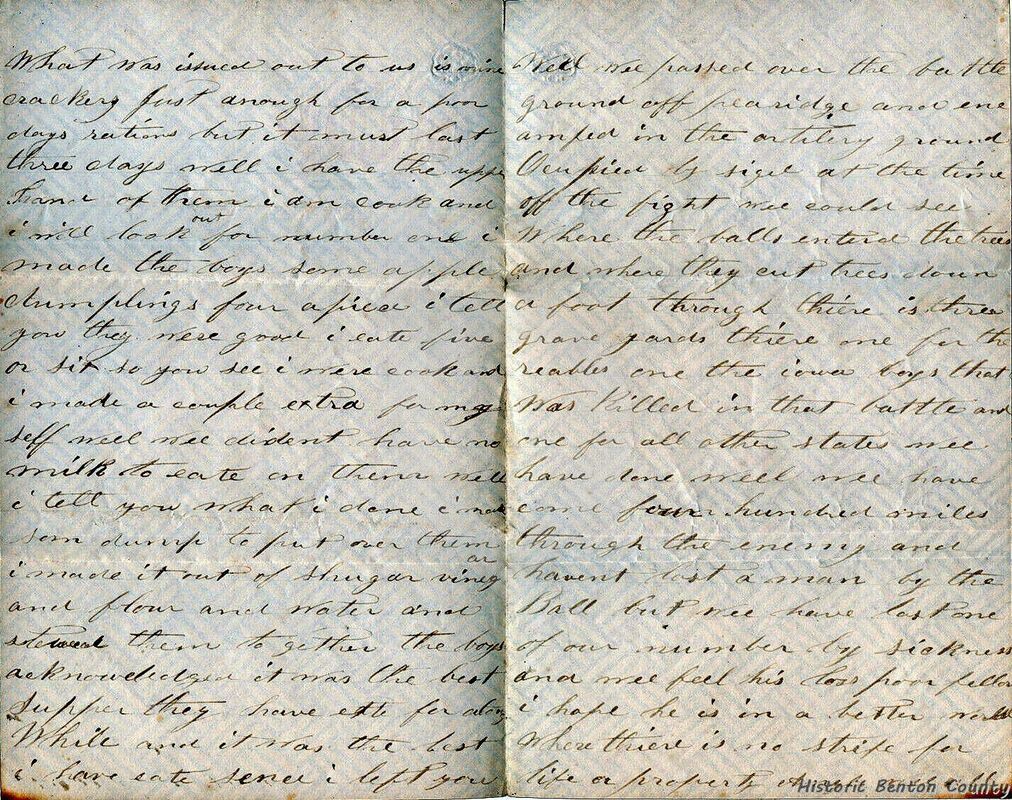 What was issued out to us is nine
crackers Just anough for a poor
days rations but it must last
three days well i have the uper
hand of them i am cook and
i will look out for number one i
made the boys some apple
dumplings four apiece i tell
you they were good i eate five
or six so you see i were cook and
i made a couple extra for my
self well wee dident have no
milk to eate on them well
i tell you what i done i made
som dump to put over them
i made it out of shugar vinegar
and flour and water and
stewed them to gether the boys
acknowledged it was the best
Supper they have eate for along
While and it was the best
i have eate sence i left you
Well wee passed over the battle
ground off pearidge and enc
amped in the artilery ground
Ocupied by sigel at the time
off the fight wee could see
Where the balls enterd the trees
and where they cut trees down
a foot through thiere is three
grave yards thiere one for the
reables one the iowa boys that
Was Killed in that battle and
one for all other states wee
have done well wee have
come four hundred miles
through the enemy and
havent lost a man by the
Ball but wee have lost one
of our number by sickness
and wee feel his loss poor fellow
i hope he is in a better world
Where thiere is no strife for
life or property
Historic Benton County